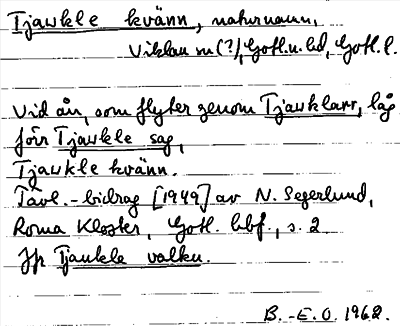 Tjaukle kvänn, naturnamn,
Viklau sn (?), Gotl.n. hd, Gotl. l.
Vid ån, som flyter genom Tjauklarr, låg
förr Tjaukle sag,
Tjaukle kvänn.
Tävl.-bidrag [1949] av N. Segerlund,
Roma Kloster, Gotl. hbf., s. 2
Jfr Tjaukle valku.
B.-E.O. 1968.